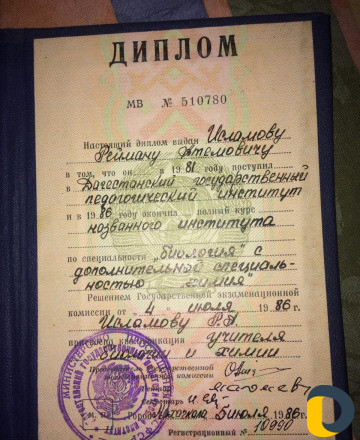 ДИПЛОМ
МВ № 510780
Настоящий диплом выдан Исламову
Рейману Ятемовичу
в том, что он в 1981 году поступил
в Дагестанский государственный
педагогический институт
и в 1986 году окончил полный курс
названного института
по специальности "биология" с
дополнительной специаль-
ностью химия"
Решением Государственной экзаменационной
комиссии от 4 июля 1986 г.
Исламову Р.Я.
присвоена квалификация учителя
биологии и химии
Председатель Государственной
экзаменационной комиссии
Ректор
Секретарь
Город Махачкала 5 июля 1986 г.
Регистрационный № 10990